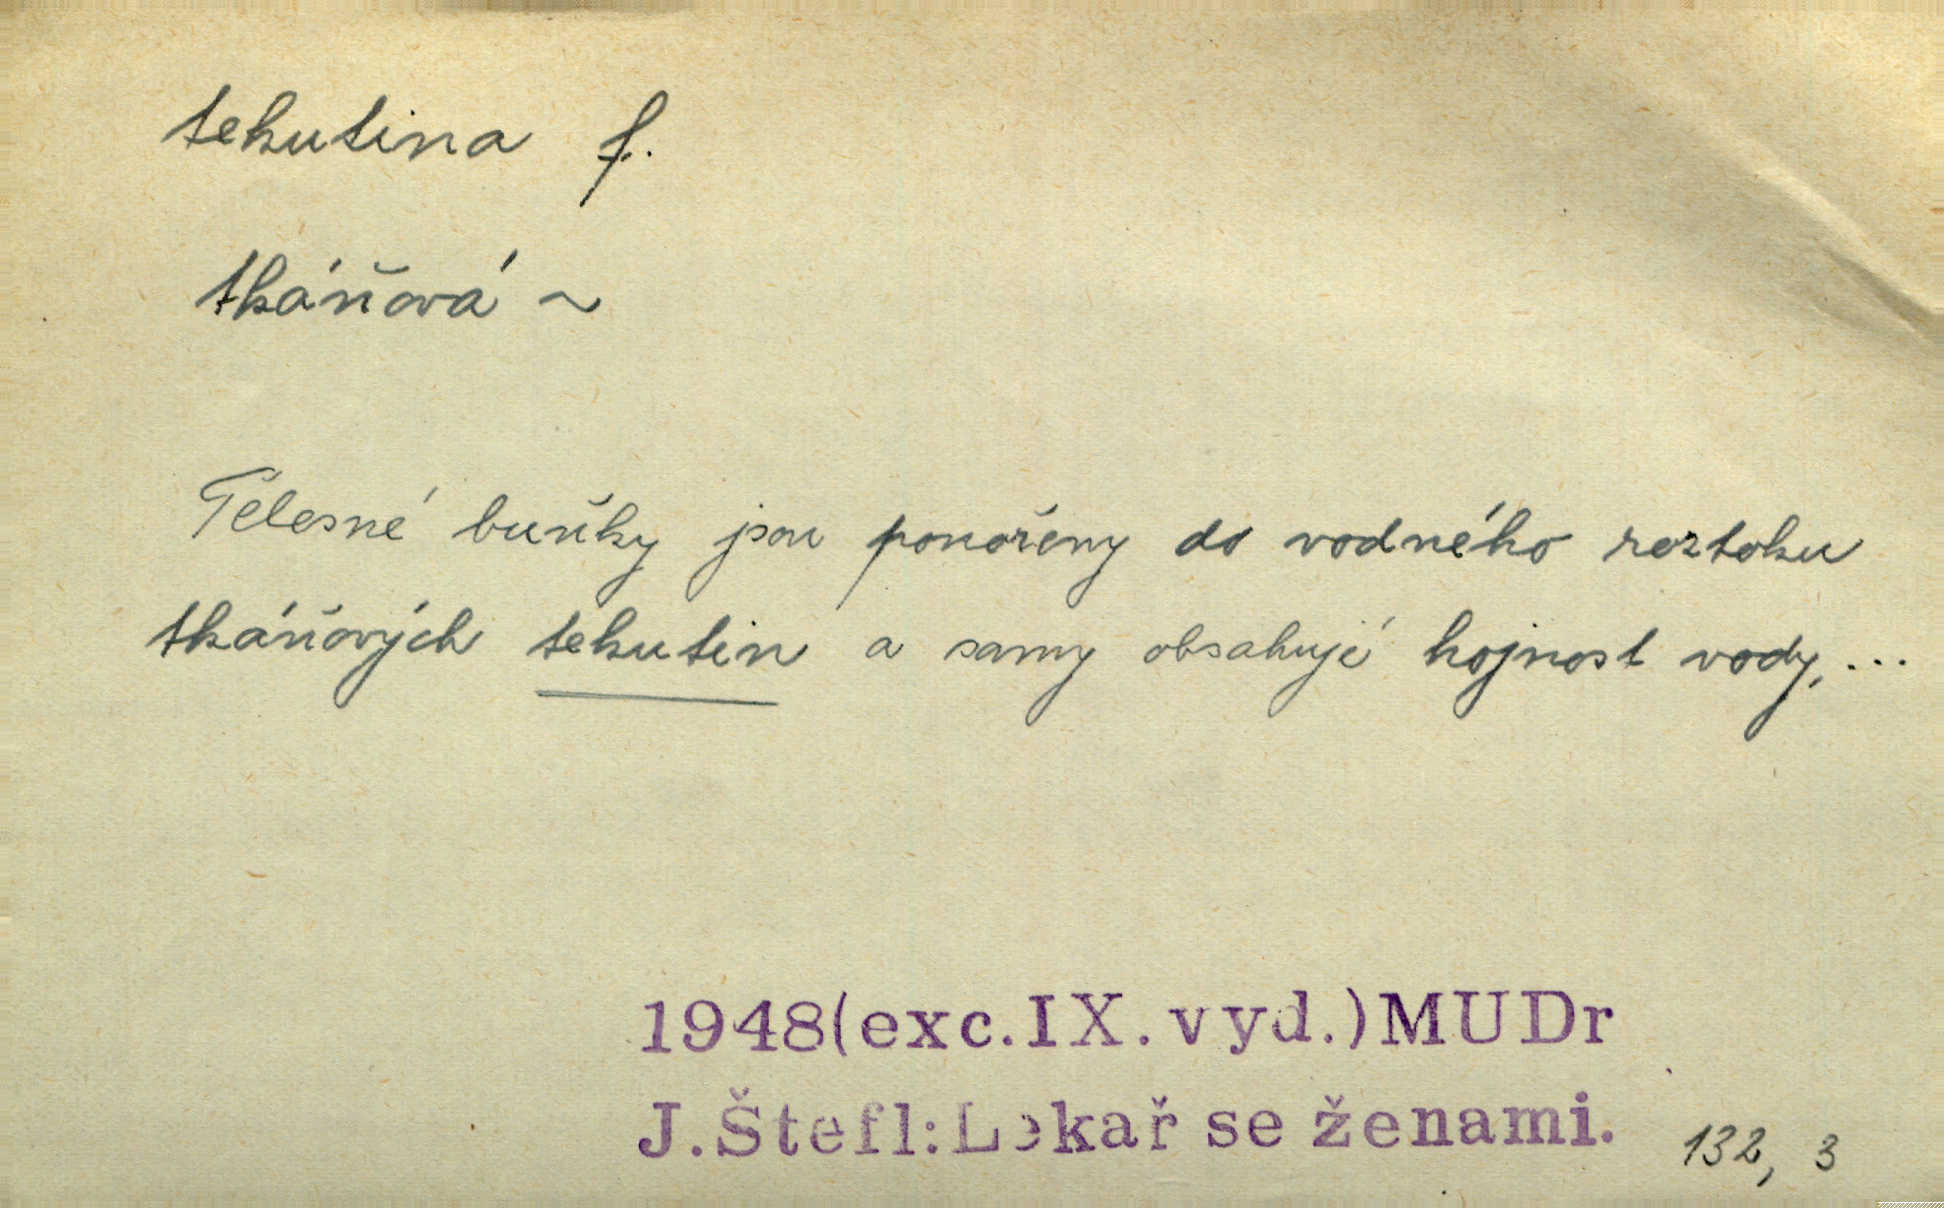 tekutina f.
tkáňová ~
Tělesné buňky jsou ponořeny do vodného roztoku
tkáňových tekutin a samy obsahují hojnost vody,...
1948(exc.IX.vyd.)MUDr
J.Štefl:Lekař se ženami. 132, 3